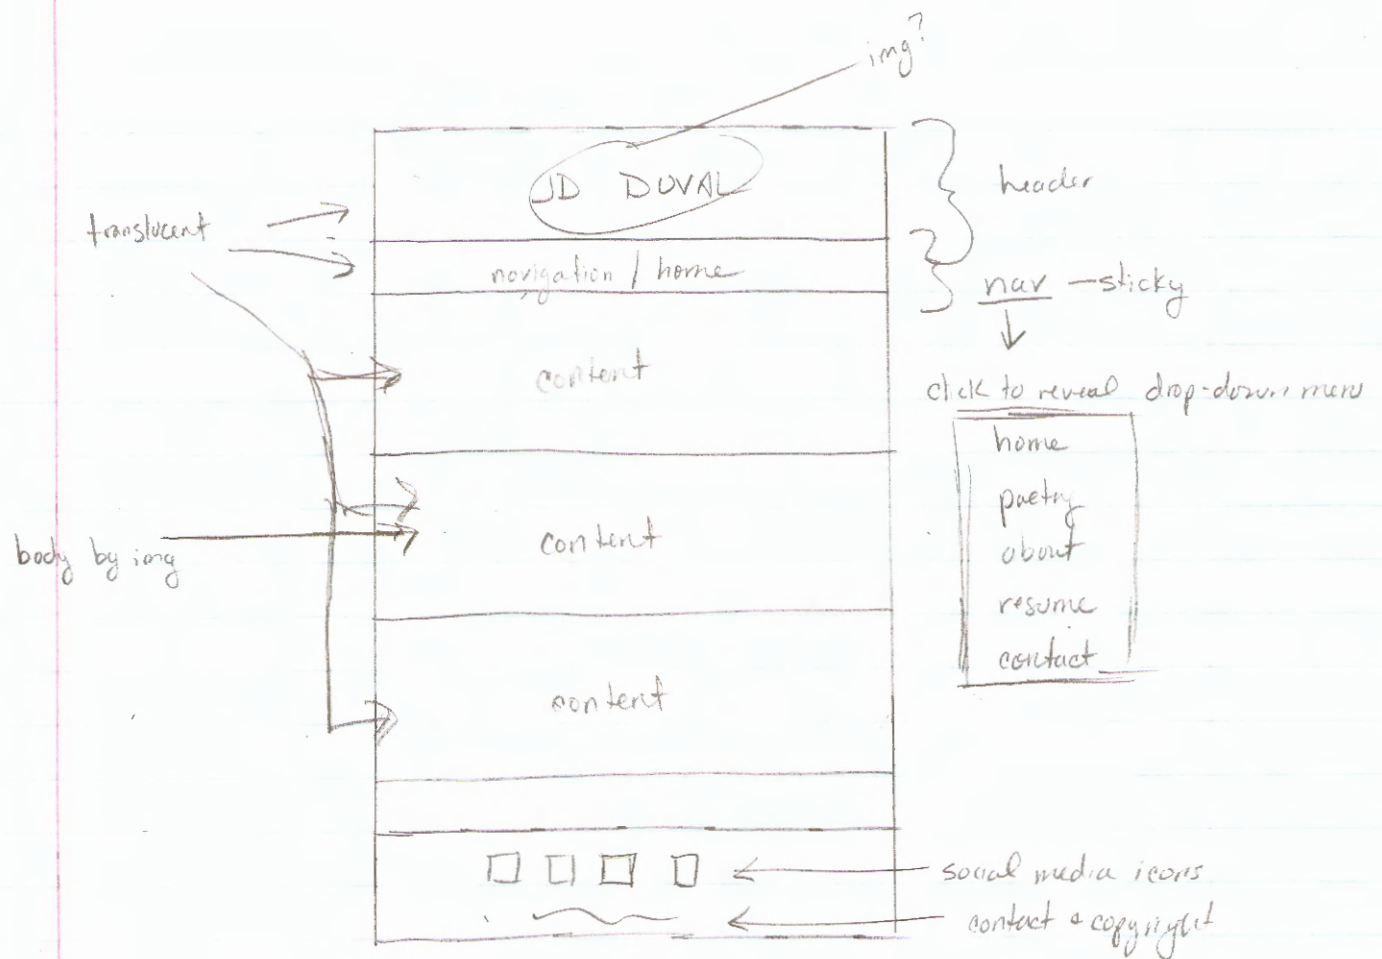 img?
JD DUVAL
header
translucent
navigation / home
nav — sticky
content
click to reveal drop-down menu
home
poetry
about
resume
contact
content
body by img
content
social media icons
contact & copyright